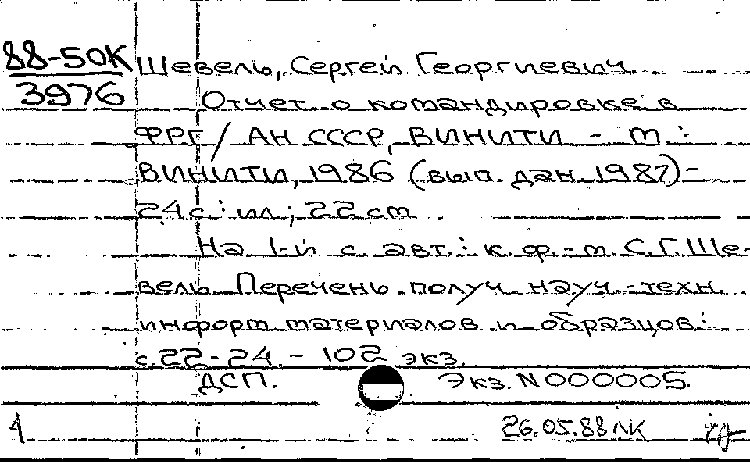 88-50К
3976
Шевель, Сергей Георгиевич
Отчет о командировке в
ФРГ / АН СССР, ВИНИТИ - м :
ВИНИТИ, 1986 (вып. дан. 1987) -
24 с : ил ; 22 cm
На 1-й с. авт.: к. ф.-м. С.Г. Ше-
вель. Перечень получ. науч.-техн.
информ. материалов и образцов:
с. 22-24. - 102 экз.
ДСП. Экз. N 000005.
26.05.88 ЛК